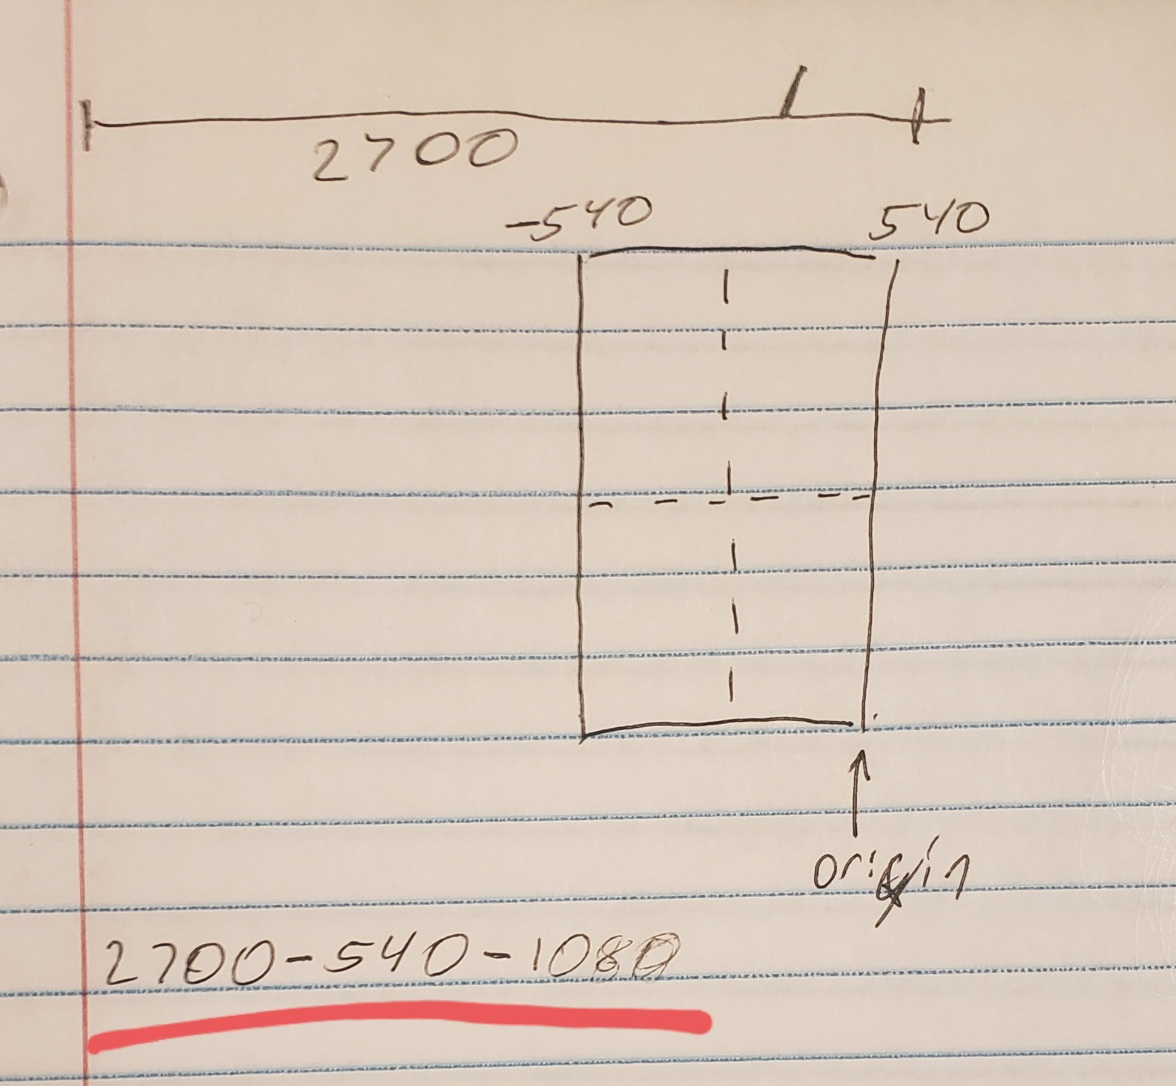 2700
-540 540
origin
2700-540-1080